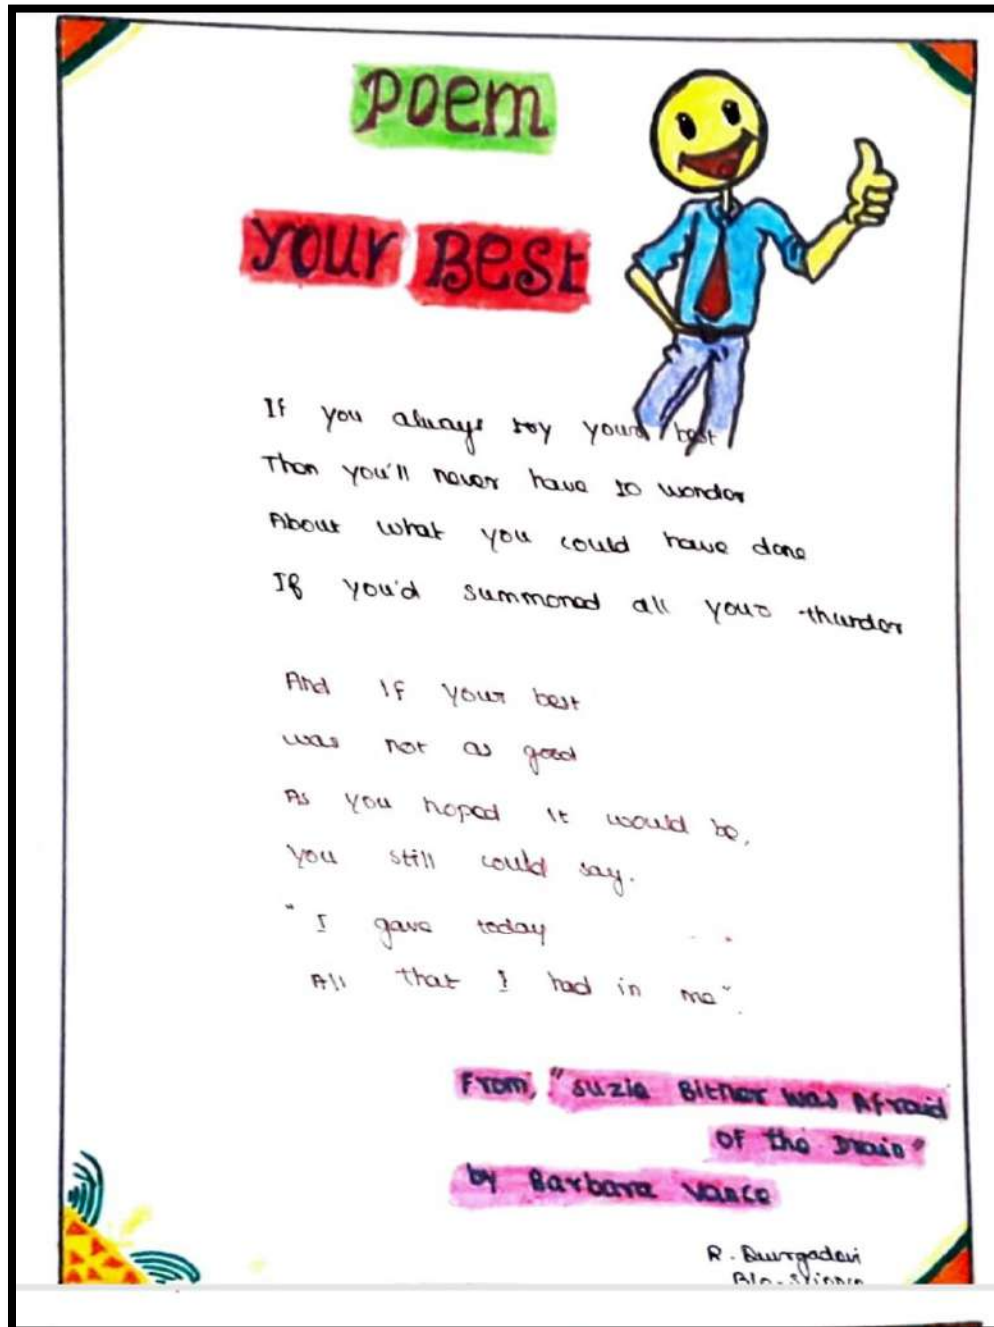 Poem
Your Best
If you always try your best
Then you'll never have to wonder
About what you could have done
If you'd summoned all your thunder
And If your best
was not as good
As you hoped it would be,
you still could say.
"I gave today
All that I had in me".
From, "Suzie Bitner was Afraid
of the Drain"
by Barbara Vance
R. Durgadevi
Bio-Science